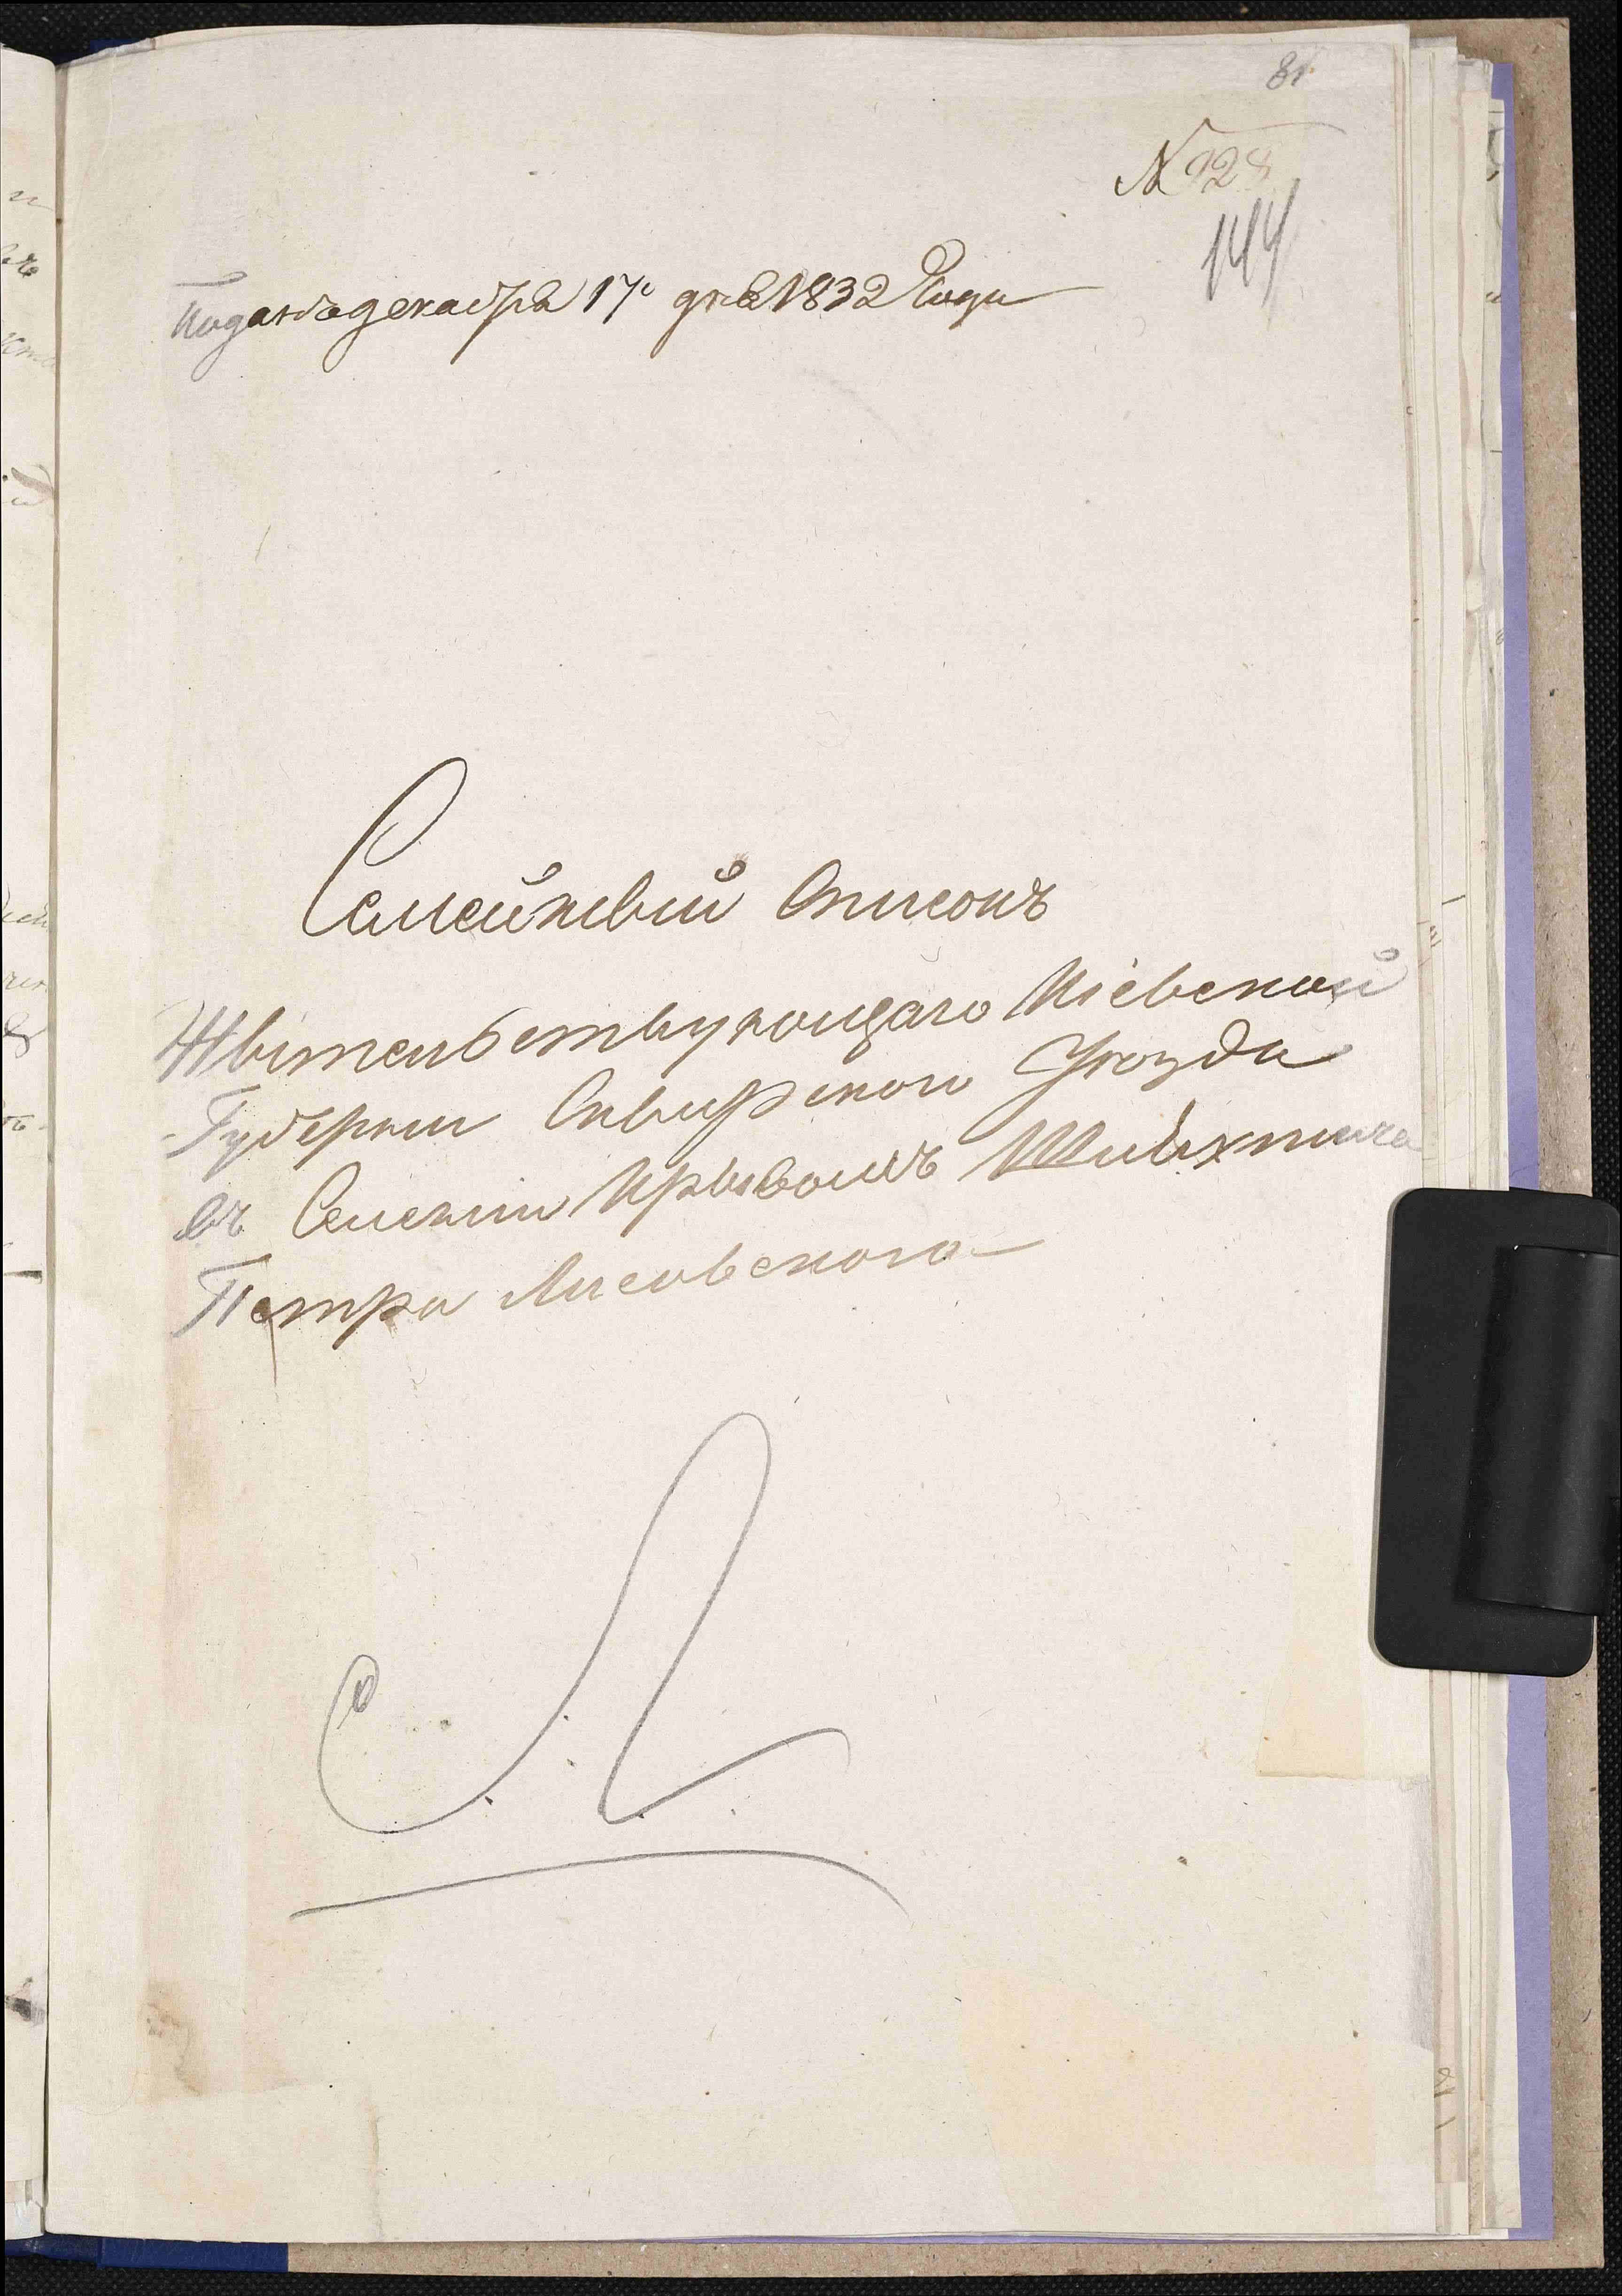 81
№ 128
144
Поданъ декабря 17го дня 1832 Года
Семейный Списокъ
Жвітельствующаго Кіевской
Губерніи Сквирского Уезда
въ Селеніи Крывомъ Шляхтича
Петра Лисовского